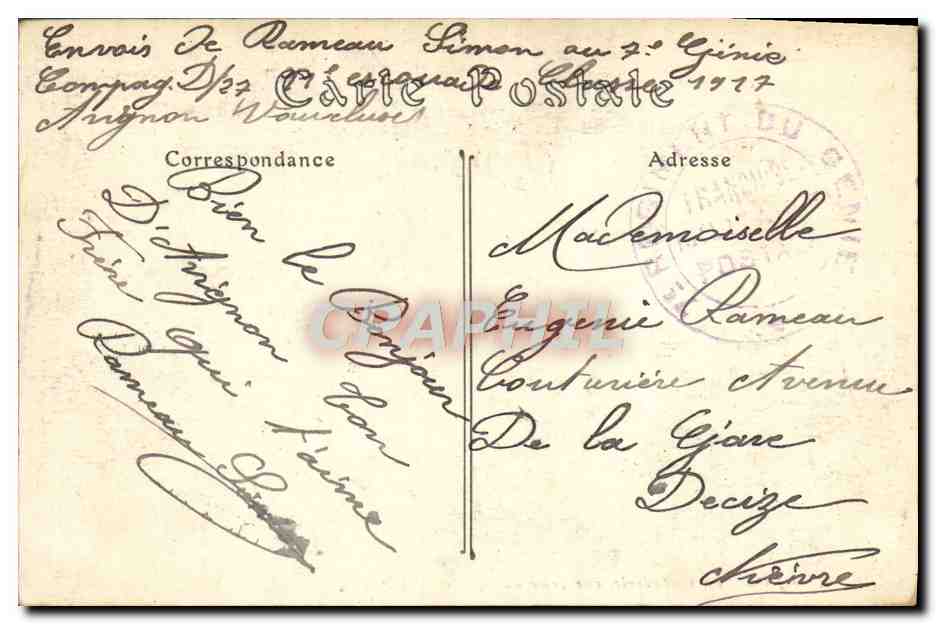 Envois De Rameau Simon au 7e Génie
Compag. D/27 escouade Classe 1917
Avignon Vaucluse
Carte Postale
Correspondance
Bien le Bonjour
D'Avignon Ton
Frère qui t'aime
Rameau Simon
Adresse
Mademoiselle
Eugenie Rameau
Couturière Avenue
De la Gare
Decize
Nièvre
RÉGIMENT DU GÉNIE
CPAPHIL